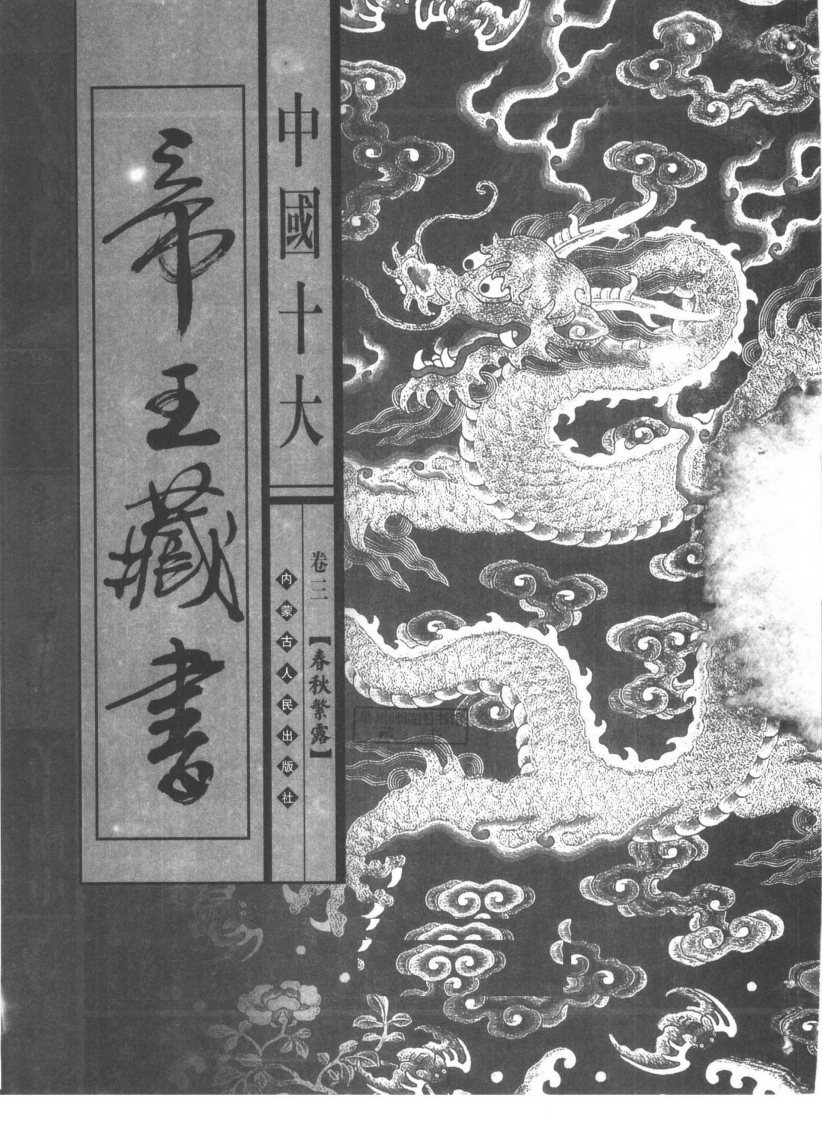 中國十大
帝王藏書
卷三
【春秋繁露】
内蒙古人民出版社